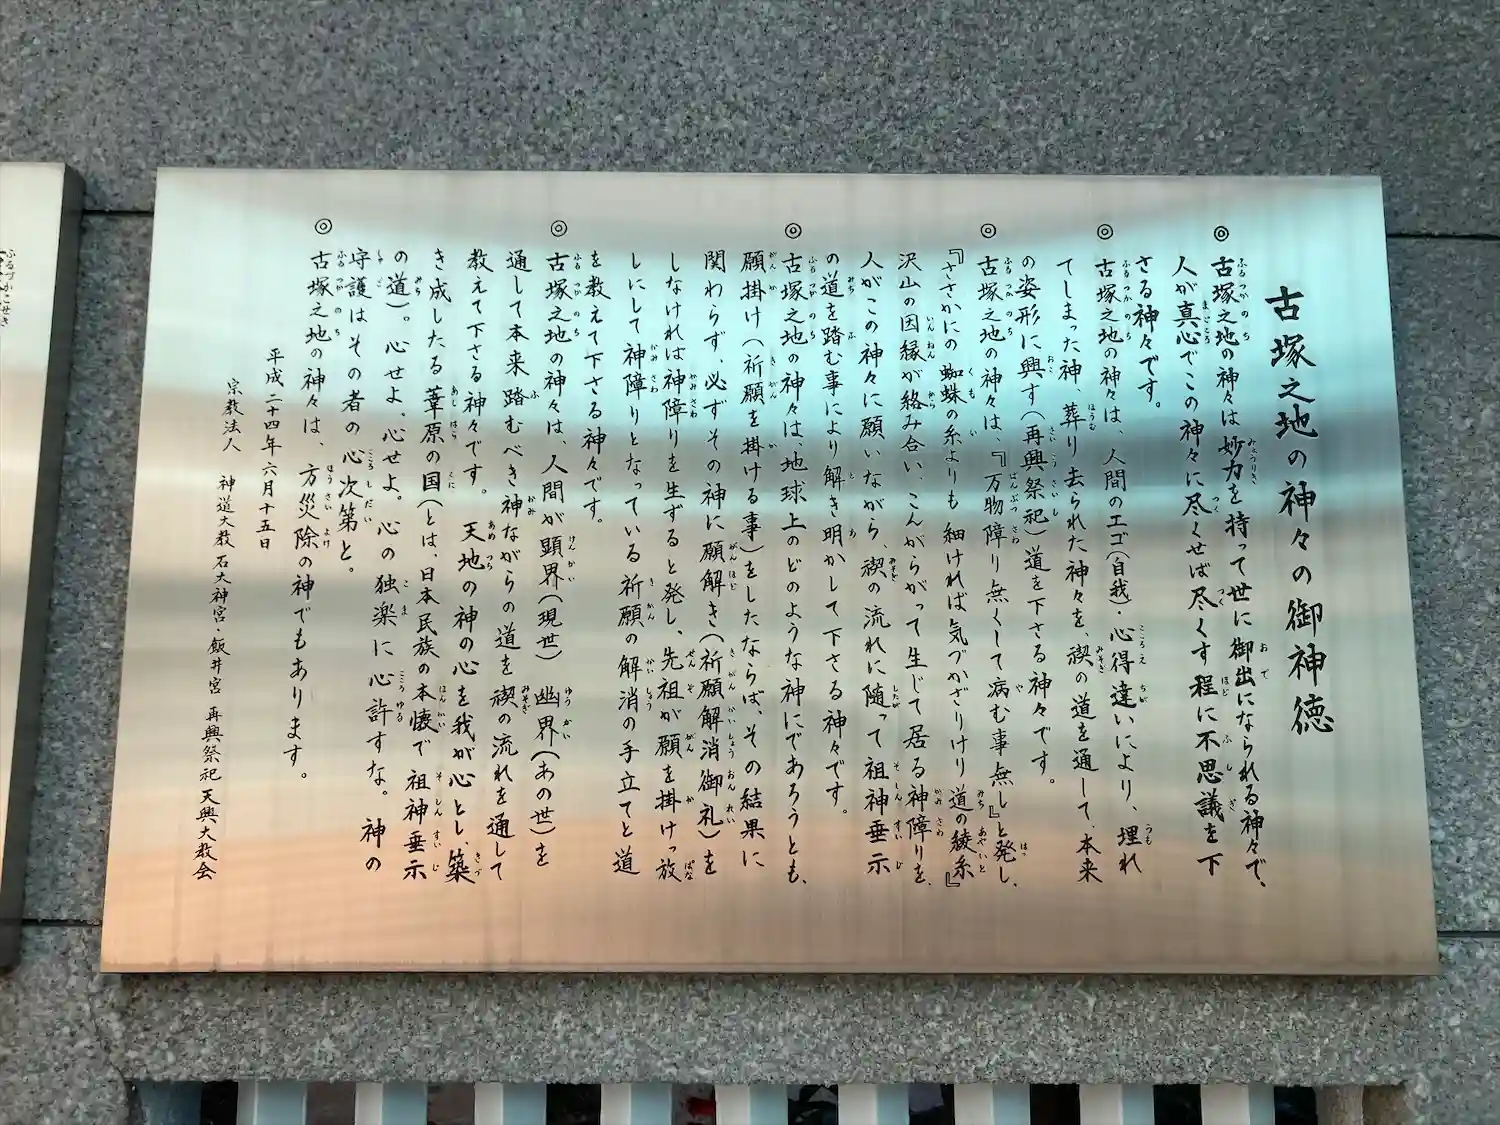 古塚之地の神々の御神徳
◎古塚之地の神々は妙力を持って世に御出になられる神々で、
人が真心でこの神々に尽くせば尽くす程に不思議を下
さる神々です。
◎古塚之地の神々は、人間のエゴ(自我)心得違いにより、埋れ
てしまった神、葬り去られた神々を、禊の道を通して、本来
の姿形に興す(再興祭祀)道を下さる神々です。
◎古塚之地の神々は、『万物障り無くして病む事無し』と発し、
『ささかにの蜘蛛の糸よりも細ければ気づかざりけり道の綾糸』
沢山の因縁が絡み合い、こんがらがって生じて居る神障りを、
人がこの神々に願いながら、禊の流れに随って祖神垂示
の道を踏む事により解き明かして下さる神々です。
◎古塚之地の神々は、地球上のどのような神にであろうとも、
願掛け(祈願を掛ける事)をしたならば、その結果に
関わらず、必ずその神に願解き(祈願解消御礼)を
しなければ神障りを生ずると発し、先祖が願を掛けっ放
しにして神障りとなっている祈願の解消の手立てと道
を教えて下さる神々です。
◎古塚之地の神々は、人間が顕界(現世)幽界(あの世)を
通して本来踏むべき神ながらの道を禊の流れを通して
教えて下さる神々です。天地の神の心を我が心とし、築
き成したる葦原の国(とは、日本民族の本懐で祖神垂示
の道)。心せよ。心せよ。心の独楽に心許すな。神の
守護はその者の心次第と。
◎古塚之地の神々は、方災除の神でもあります。
平成二十四年六月十五日
宗教法人 神道大教 石大神宮 飯井宮 再興祭祀 天興大教会
ふるづかこせき